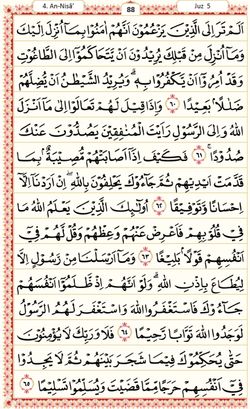 4. An-Nisā'
88
Juz 5
اَلَمْ تَرَ اِلَى الَّذِيْنَ يَزْعُمُوْنَ اَنَّهُمْ اٰمَنُوْا بِمَآ اُنْزِلَ اِلَيْكَ
وَمَآ اُنْزِلَ مِنْ قَبْلِكَ يُرِيْدُوْنَ اَنْ يَّتَحَاكَمُوْٓا اِلَى الطَّاغُوْتِ
وَقَدْ اُمِرُوْٓا اَنْ يَّكْفُرُوْا بِهٖ ؕ وَيُرِيْدُ الشَّيْطٰنُ اَنْ يُّضِلَّهُمْ
ضَلٰلًاۢ بَعِيْدًا ﴿٦٠﴾ وَاِذَا قِيْلَ لَهُمْ تَعَالَوْا اِلٰى مَآ اَنْزَلَ
اللّٰهُ وَاِلَى الرَّسُوْلِ رَاَيْتَ الْمُنٰفِقِيْنَ يَصُدُّوْنَ عَنْكَ
صُدُوْدًا ﴿٦١﴾ فَكَيْفَ اِذَآ اَصَابَتْهُمْ مُّصِيْبَةٌۢ بِمَا
قَدَّمَتْ اَيْدِيْهِمْ ثُمَّ جَآءُوْكَ يَحْلِفُوْنَ بِاللّٰهِ اِنْ اَرَدْنَآ اِلَّآ
اِحْسَانًا وَّتَوْفِيْقًا ﴿٦٢﴾ اُولٰٓئِكَ الَّذِيْنَ يَعْلَمُ اللّٰهُ مَا
فِيْ قُلُوْبِهِمْ فَاَعْرِضْ عَنْهُمْ وَعِظْهُمْ وَقُلْ لَّهُمْ فِيْٓ
اَنْفُسِهِمْ قَوْلًاۢ بَلِيْغًا ﴿٦٣﴾ وَمَآ اَرْسَلْنَا مِنْ رَّسُوْلٍ اِلَّا
لِيُطَاعَ بِاِذْنِ اللّٰهِ ؕ وَلَوْ اَنَّهُمْ اِذْ ظَّلَمُوْٓا اَنْفُسَهُمْ
جَآءُوْكَ فَاسْتَغْفَرُوا اللّٰهَ وَاسْتَغْفَرَ لَهُمُ الرَّسُوْلُ
لَوَجَدُوا اللّٰهَ تَوَّابًا رَّحِيْمًا ﴿٦٤﴾ فَلَا وَرَبِّكَ لَا يُؤْمِنُوْنَ
حَتّٰى يُحَكِّمُوْكَ فِيْمَا شَجَرَ بَيْنَهُمْ ثُمَّ لَا يَجِدُوْا
فِيْٓ اَنْفُسِهِمْ حَرَجًا مِّمَّا قَضَيْتَ وَيُسَلِّمُوْا تَسْلِيْمًا ﴿٦٥﴾